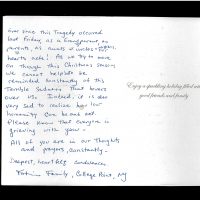 Ever since this Tragedy occurred
last Friday, as a grandparent, as
parents, as aunts & uncles - our
hearts ache! As we try to move
on through this Christmas season
we cannot help but be
reminded constantly of this
Terrible Sadness that hovers
over us. Indeed, it is also
very sad to realize how low
humanity can be and act.
Please know that everyone is
grieving with you.
All of you are in our Thoughts
and prayers, constantly.
Deepest, heartfelt condolences
Family, College Point, NY
Enjoy a sparkling holiday filled with
good friends and family